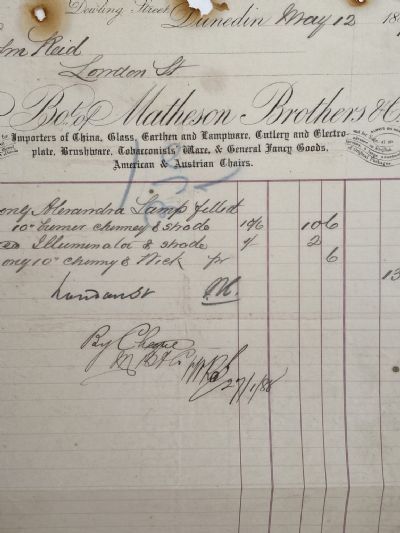 Dowling Street Dunedin May 12 18
Reid
London St
Bot of Matheson Brothers & C
Importers of China, Glass, Earthen and Lampware, Cutlery and Electro-
plate, Brushware, Tobacconists' Ware, & General Fancy Goods.
American & Austrian Chairs.
only Alexandra Lamp fitted
10" Burner chimney & shade 10/6 10 6
Illuminator & shade 2
only 10" chimney & Wick pr 6
13
London St
By Cheque
27/1/88